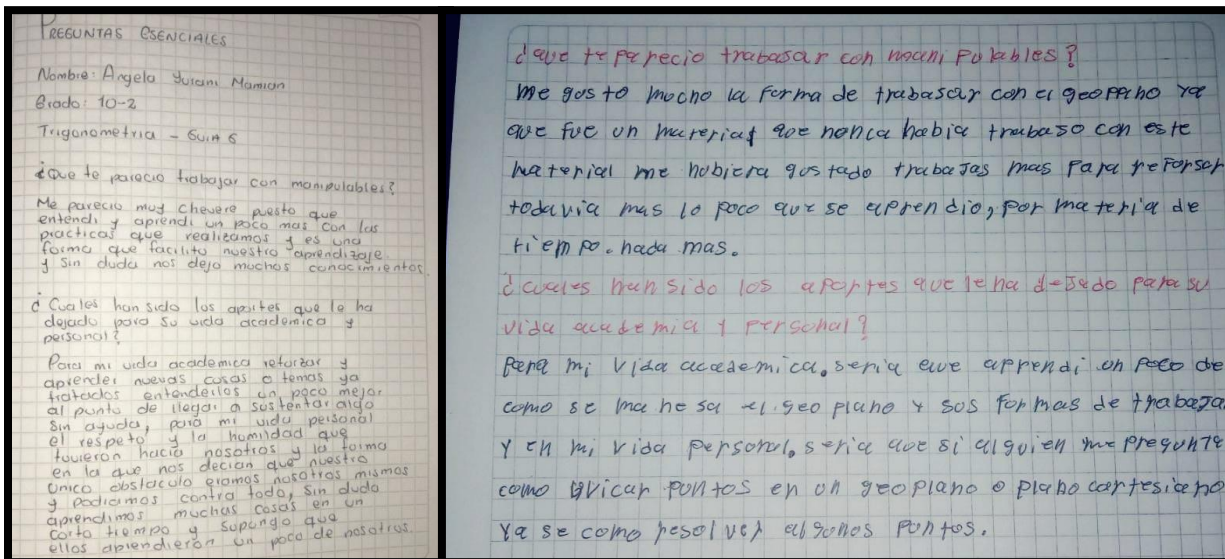 PREGUNTAS ESENCIALES
Nombre: Angela Yurani Mamian
Grado: 10-2
Trigonometria - Guia 6
¿Que te parecio trabajar con manipulables?
Me parecio muy chevere puesto que
entendi y aprendi un poco mas con las
practicas que realizamos y es una
forma que facilito nuestro aprendizaje.
y sin duda nos dejo muchos conocimientos.
¿Cuales han sido los aportes que le ha
dejado para su vida academica y
personal?
Para mi vida academica reforzar y
aprender nuevas cosas o temas ya
tratados entenderlos un poco mejor
al punto de llegar a sustentar algo
sin ayuda, para mi vida personal
el respeto y la humildad que
tuvieron hacia nosotros y la forma
en la que nos decian que nuestro
unico obstaculo eramos nosotros mismos
y podiamos contra todo, sin duda
aprendimos muchas cosas en un
corto tiempo y supongo que
ellos aprendieron un poco de nosotros.
¿que te parecio trabasar con manipulables?
me gusto mucho la forma de trabasar con el geopano ya
que fue un material que nunca habia trabaso con este
material me hubiera gustado trabajas mas para reforsar
todavia mas lo poco que se aprendio, por materia de
tiempo. nada mas.
¿cuales han sido los aportes que le ha desado para su
vida academia y personal?
para mi vida academica, seria que aprendi un poco de
como se manesa el geoplano y sus formas de trabaja
y en mi vida personal, seria que si alguien me pregunta
como uvicar puntos en un geoplano o plano cartesiano
ya se como resolver algunos puntos.